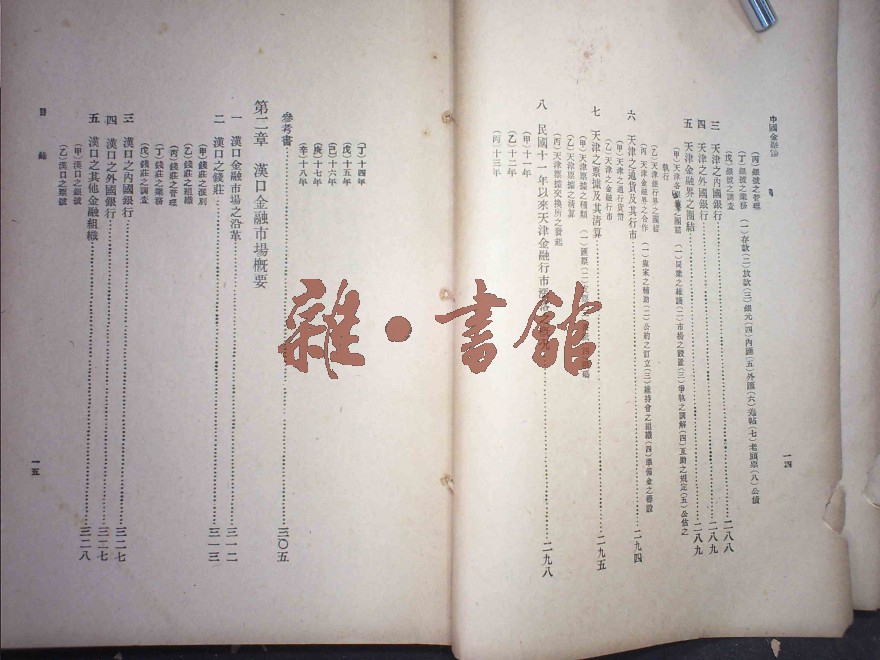 中國金融論
(丙)銀號之管理
(丁)銀號之業務 (一)存款(二)放款(三)銀元(四)內匯(五)外匯(六)(七)老頭票(八)公債
(戊)銀號之調查
三 天津之內國銀行 二八八
四 天津之外國銀行 二八九
五 天津金融界之團結 二八九
(甲)天津各之團結 (一)同業之維護(二)市場之設置(三)爭執之調解(四)互助之規定(五)公估之
執行
(乙)天津銀行界之團結
(丙)天津金融界之合作 (一)之補助(二)公約之訂立(三)維持會之組織(四)準備金之
六 天津之通貨及其行市 二九四
(甲)天津之通行貨幣
(乙)天津之金融行市
七 天津之票據及其清算 二九五
(甲)天津票據之種類 (一)匯票(二)
(乙)天津票據之清算
(丙)天津票據交換所之發起
八 民國十一年以來天津金融行市 二九八
(甲)十一年
(乙)十二年
(丙)十三年
一四
(丁)十四年
(戊)十五年
(己)十六年
(庚)十七年
(辛)十八年
參考書 三〇五
第二章 漢口金融市場概要
一 漢口金融市場之沿革 三一二
二 漢口之錢莊 三一三
(甲)錢莊之派別
(乙)錢莊之組織
(丙)錢莊之管理
(丁)錢莊之業務
(戊)錢莊之調查
三 漢口之內國銀行 三二七
四 漢口之外國銀行 三二七
五 漢口之其他金融組織 三二八
(甲)漢口之銀號
(乙)漢口之票號
目錄
一五
雜·書館